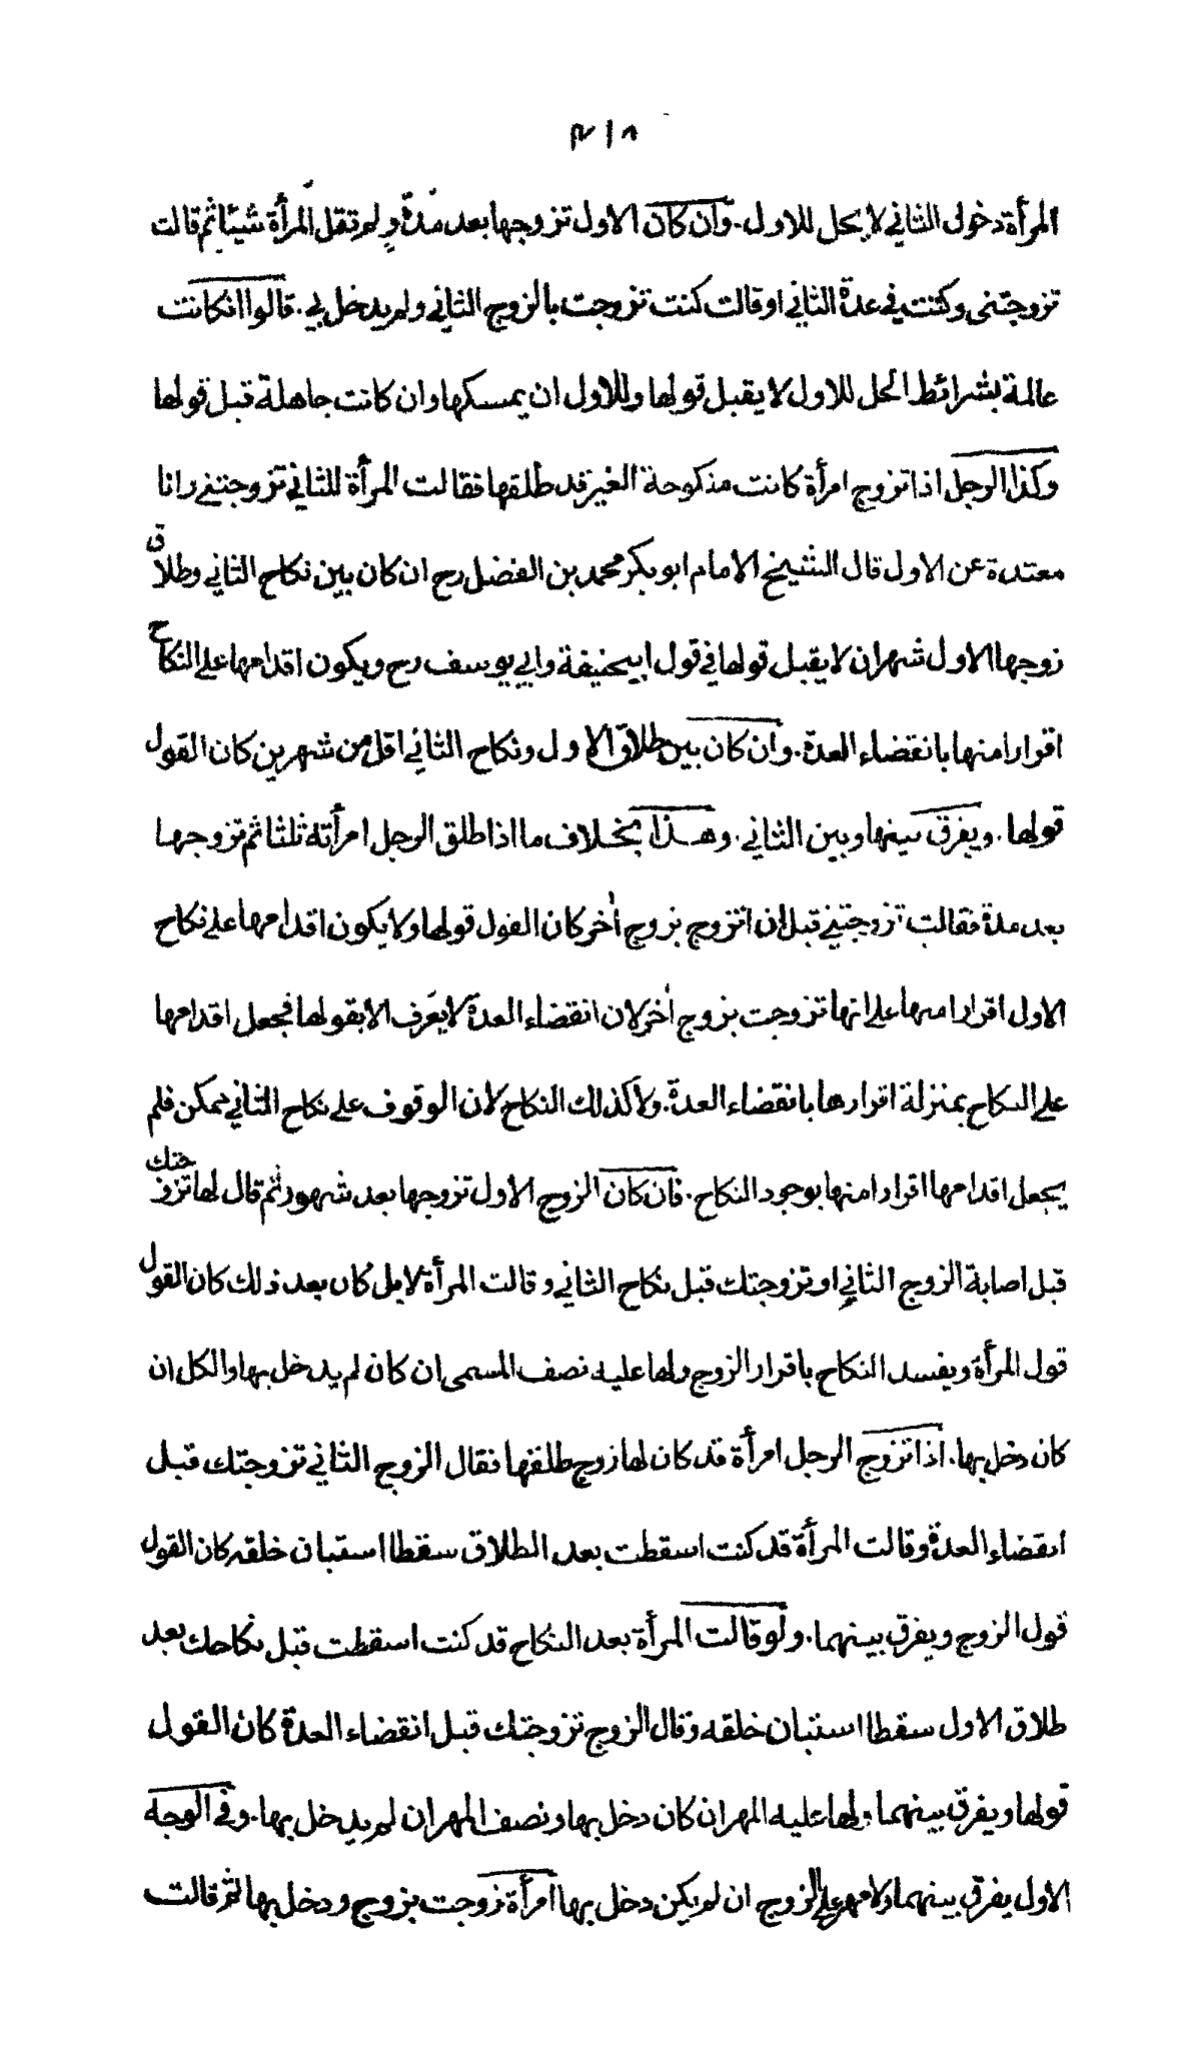 ٣١٨
المرأة دخول الثاني لا يحل للاول. وان كان الاول تزوجها بعد مدة ولم تقل المرأة شيئا ثم قالت
تزوجتني وكنت في عدة الثاني او قالت كنت تزوجت بالزوج الثاني ولم يدخل بي. قالوا ان كانت
عالمة بشرائط الحل للاول لا يقبل قولها وللاول ان يمسكها وان كانت جاهلة قبل قولها
وكذا الرجل اذا تزوج امرأة كانت منكوحة الغير قد طلقها فقالت المرأة للثاني تزوجتني وانا
معتدة عن الاول قال الشيخ الامام ابو بكر محمد بن الفضل رح ان كان بين نكاح الثاني وطلاق
زوجها الاول شهران لا يقبل قولها في قول ابيحنيفة وابي يوسف رح ويكون اقدامها على النكاح
اقرارا منها بانقضاء العدة. وان كان بين طلاق الاول ونكاح الثاني اقل من شهرين كان القول
قولها. ويفرق بينها وبين الثاني. وهذا بخلاف ما اذا طلق الرجل امرأته ثلثا ثم تزوجها
بعد مدة فقالت تزوجتني قبل ان اتزوج بزوج اٰخر كان القول قولها ولا يكون اقدامها على نكاح
الاول اقرارا منها على انها تزوجت بزوج اٰخر لان انقضاء العدة لا يعرف الا بقولها فجعل اقدامها
على النكاح بمنزلة اقرارها بانقضاء العدة. ولا كذلك النكاح لان الوقوف على نكاح الثاني ممكن فلم
يجعل اقدامها اقرارا منها بوجود النكاح. فان كان الزوج الاول تزوجها بعد شهور ثم قال لها تزوجتك
قبل اصابة الزوج الثاني او تزوجتك قبل نكاح الثاني وقالت المرأة لا بل كان بعد ذلك كان القول
قول المرأة ويفسد النكاح باقرار الزوج ولها عليه نصف المسمى ان كان لم يدخل بها والكل ان
كان دخل بها. اذا تزوج الرجل امرأة قد كان لها زوج طلقها فقال الزوج الثاني تزوجتك قبل
انقضاء العدة وقالت المرأة قد كنت اسقطت بعد الطلاق سقطا استبان خلقه كان القول
قول الزوج ويفرق بينهما. ولو قالت المرأة بعد النكاح قد كنت اسقطت قبل نكاحك بعد
طلاق الاول سقطا استبان خلقه وقال الزوج تزوجتك قبل انقضاء العدة كان القول
قولها ويفرق بينهما ولها عليه المهر ان كان دخل بها ونصف المهر ان لم يدخل بها. وفي الوجه
الاول يفرق بينهما ولا مهر على الزوج ان لم يكن دخل بها امرأة تزوجت بزوج ودخل بها ثم قالت